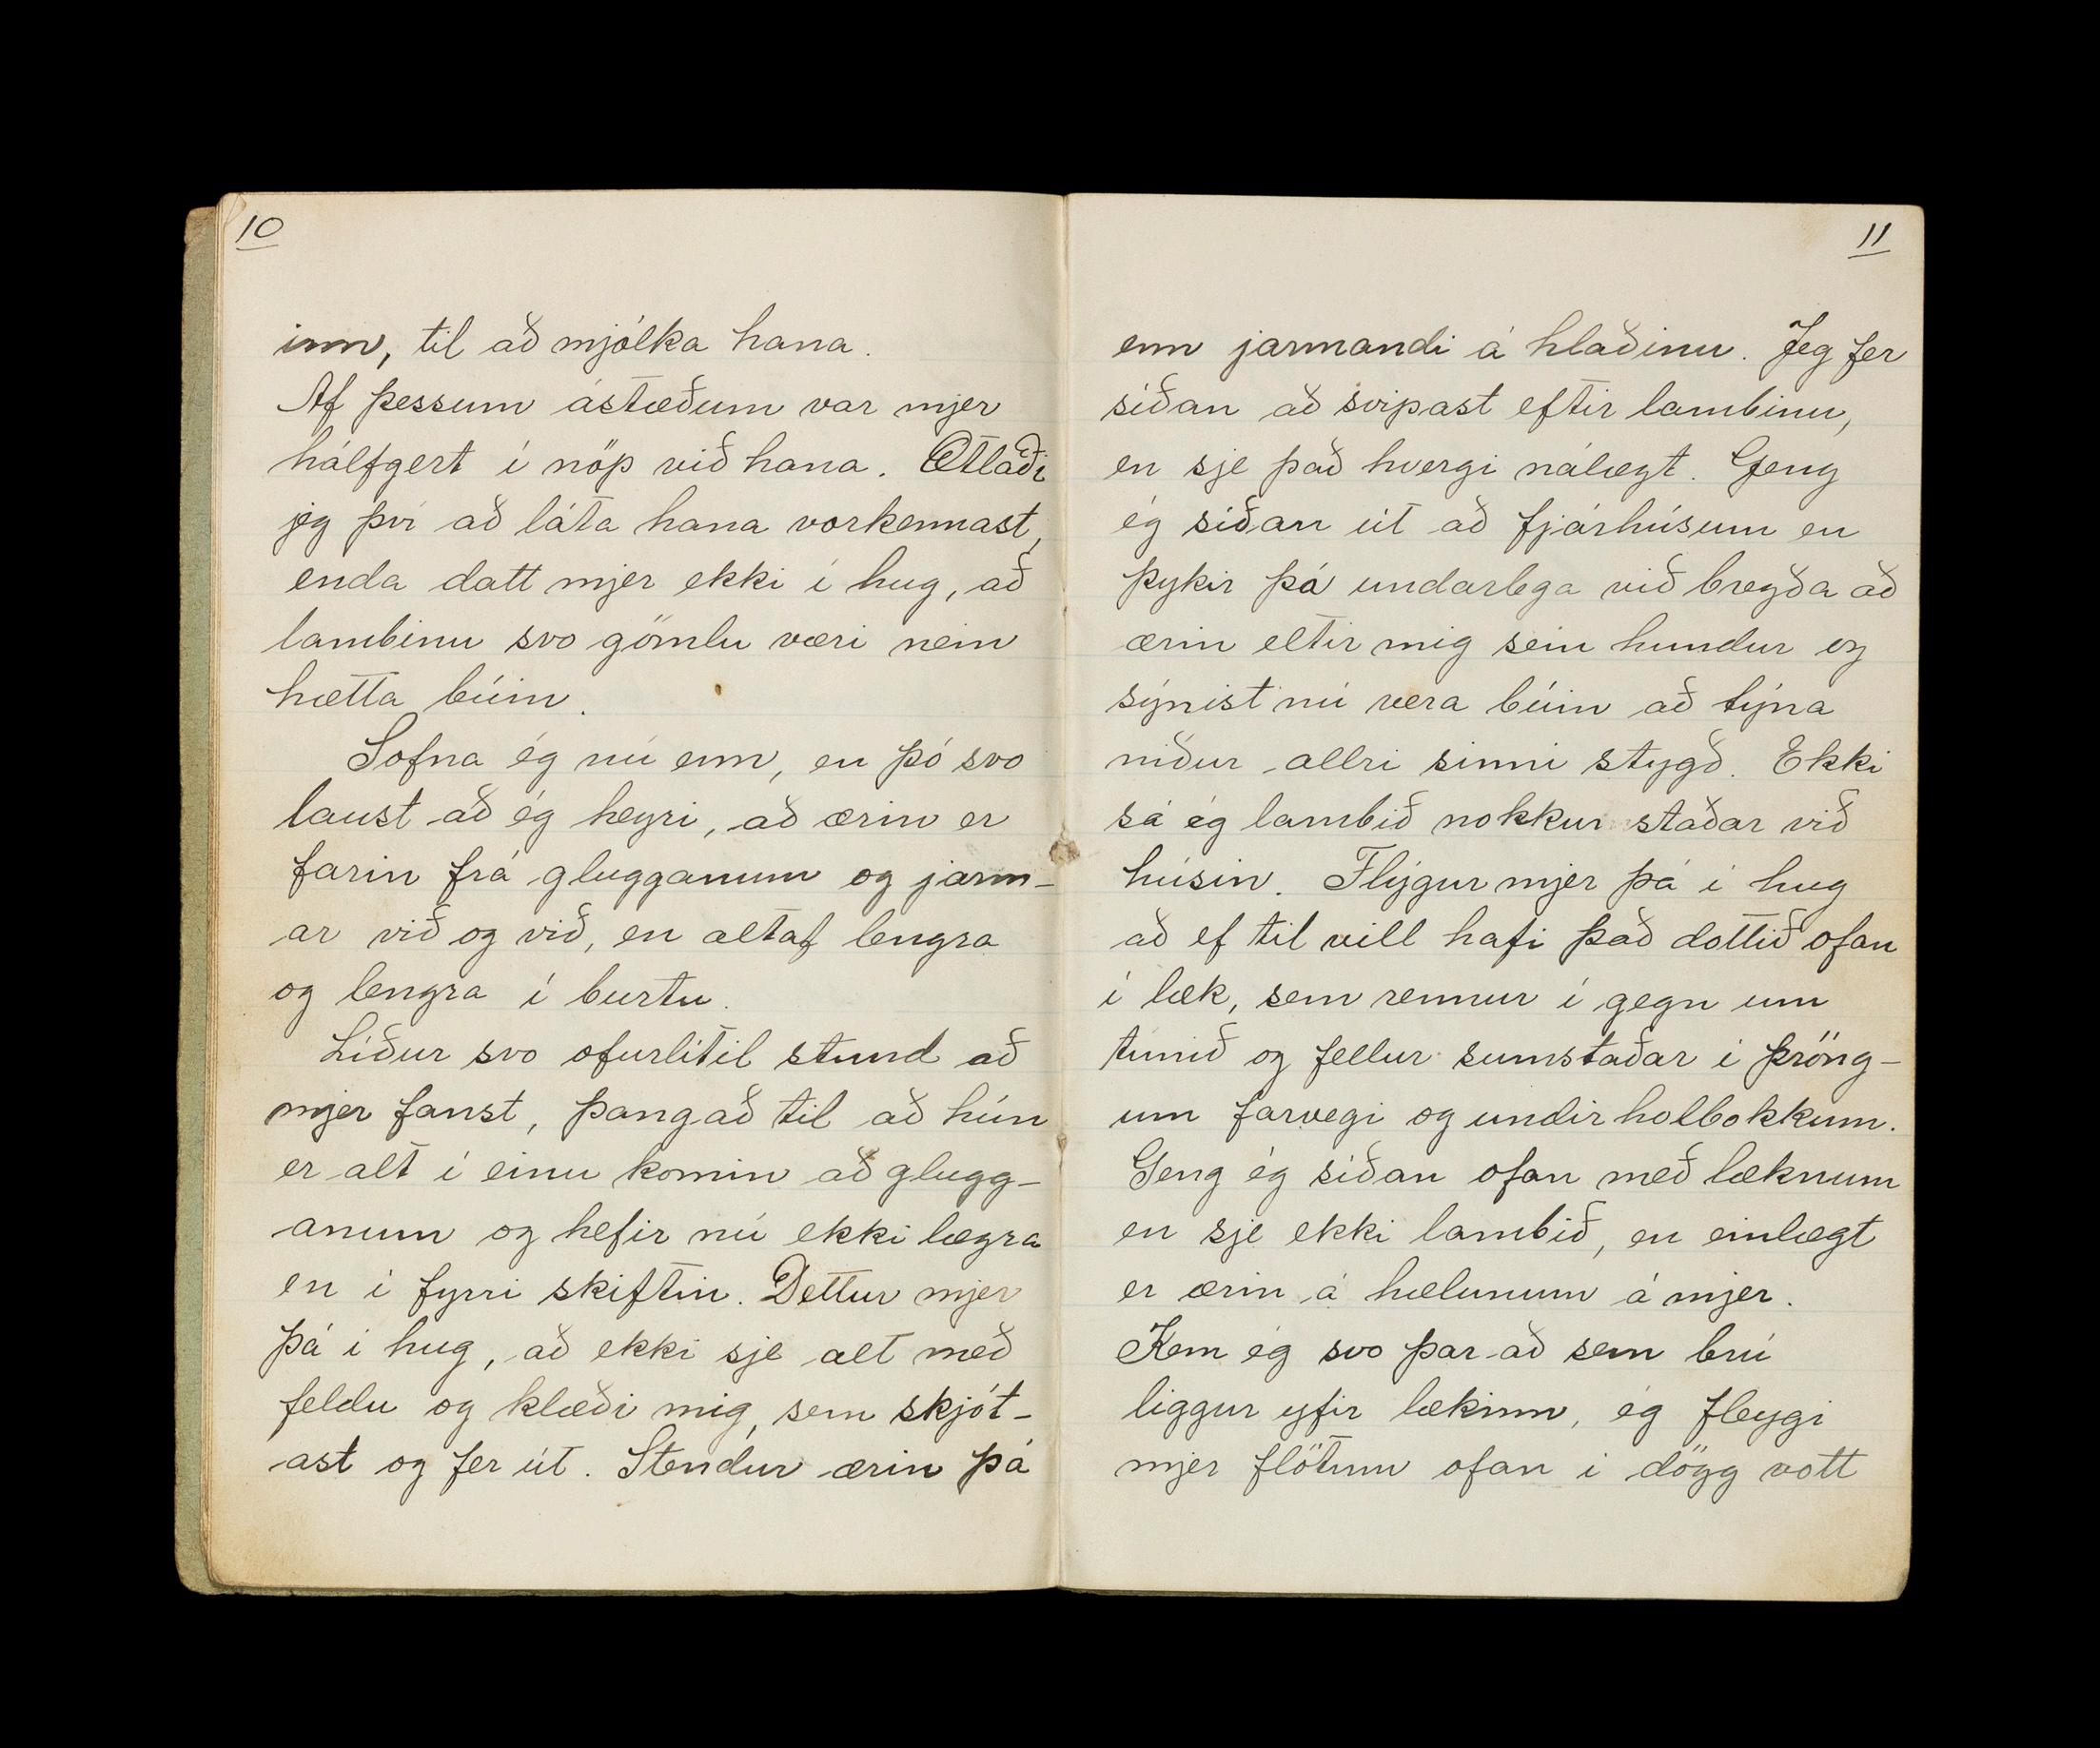 10
inn, til að mjólka hana.
Af þessum ástæðum var mjer
hálfgert í nöp við hana. Ætlaði
jeg því að láta hana vorkennast,
enda datt mjer ekki í hug, að
lambinu svo gömlu væri nein
hætta búin.
Sofna ég nú enn, en þó svo
laust að ég heyri, að ærin er
farin frá glugganum og jarm-
ar við og við, en altaf lengra
og lengra í burtu.
Líður svo ofurlítil stund að
mjer fanst, þangað til að hún
er alt í einu komin að glugg-
anum og hefir nú ekki lægra
en í fyrri skiftin. Dettur mjer
þá í hug, að ekki sje alt með
feldu og klæði mig, sem skjót-
ast og fer út. Stendur ærin þá
11
enn jarmandi á hlaðinu. Jeg fer
síðan að svipast eftir lambinu,
en sje það hvergi nálægt. Geng
ég síðan út að fjárhúsum en
þykir þá undarlega við bregða að
ærin eltir mig sem hundur og
sýnist nú vera búin að týna
niður allri sinni stygð. Ekki
sá ég lambið nokkur staðar við
húsin. Flýgur mjer þá í hug
að ef til vill hafi það dottið ofan
í læk, sem rennur í gegn um
túnið og fellur sumstaðar í þröng-
um farvegi og undir holbokkum.
Geng ég síðan ofan með læknum
en sje ekki lambið, en einlægt
er ærin á hælunum á mjer.
Kem ég svo þar að sem brú
liggur yfir lækinn, ég fleygi
mjer flötum ofan í dögg vott